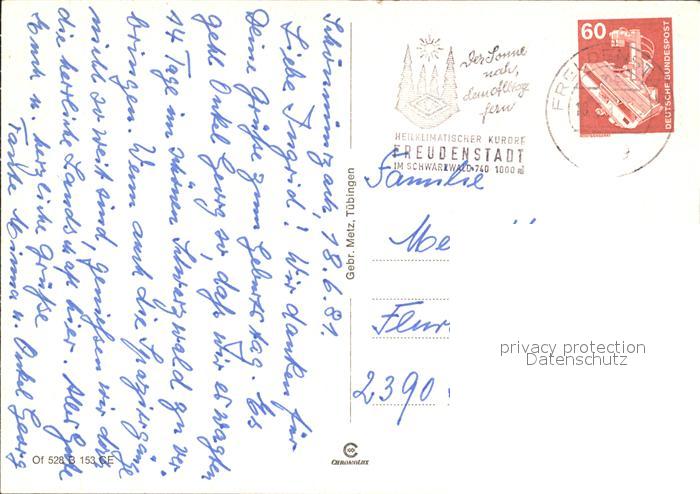 Schönmünzach, 18.6.81
Liebe Ingrid! Wir danken für
Deine Grüße zum Geburtstag. Es
geht Onkel Georg so, daß wir es wagten
14 Tage im schönen Schwarzwald zu ver-
bringen. Wenn auch die Spaziergänge
nicht so weit sind, genießen wir doch
die herrliche Landschaft hier. Alles Gute
Euch u. herzliche Grüße
Tante Minna u. Onkel Georg
Of 528 B 153 CE
Gebr. Metz, Tübingen
CHROMOLUX
Der Sonne
nah,
dem Alltag
fern
HEILKLIMATISCHER KURORT
FREUDENSTADT
IM SCHWARZWALD 740 1000 m
60
DEUTSCHE BUNDESPOST
Familie
Me
Flur
2390
privacy protection
Datenschutz